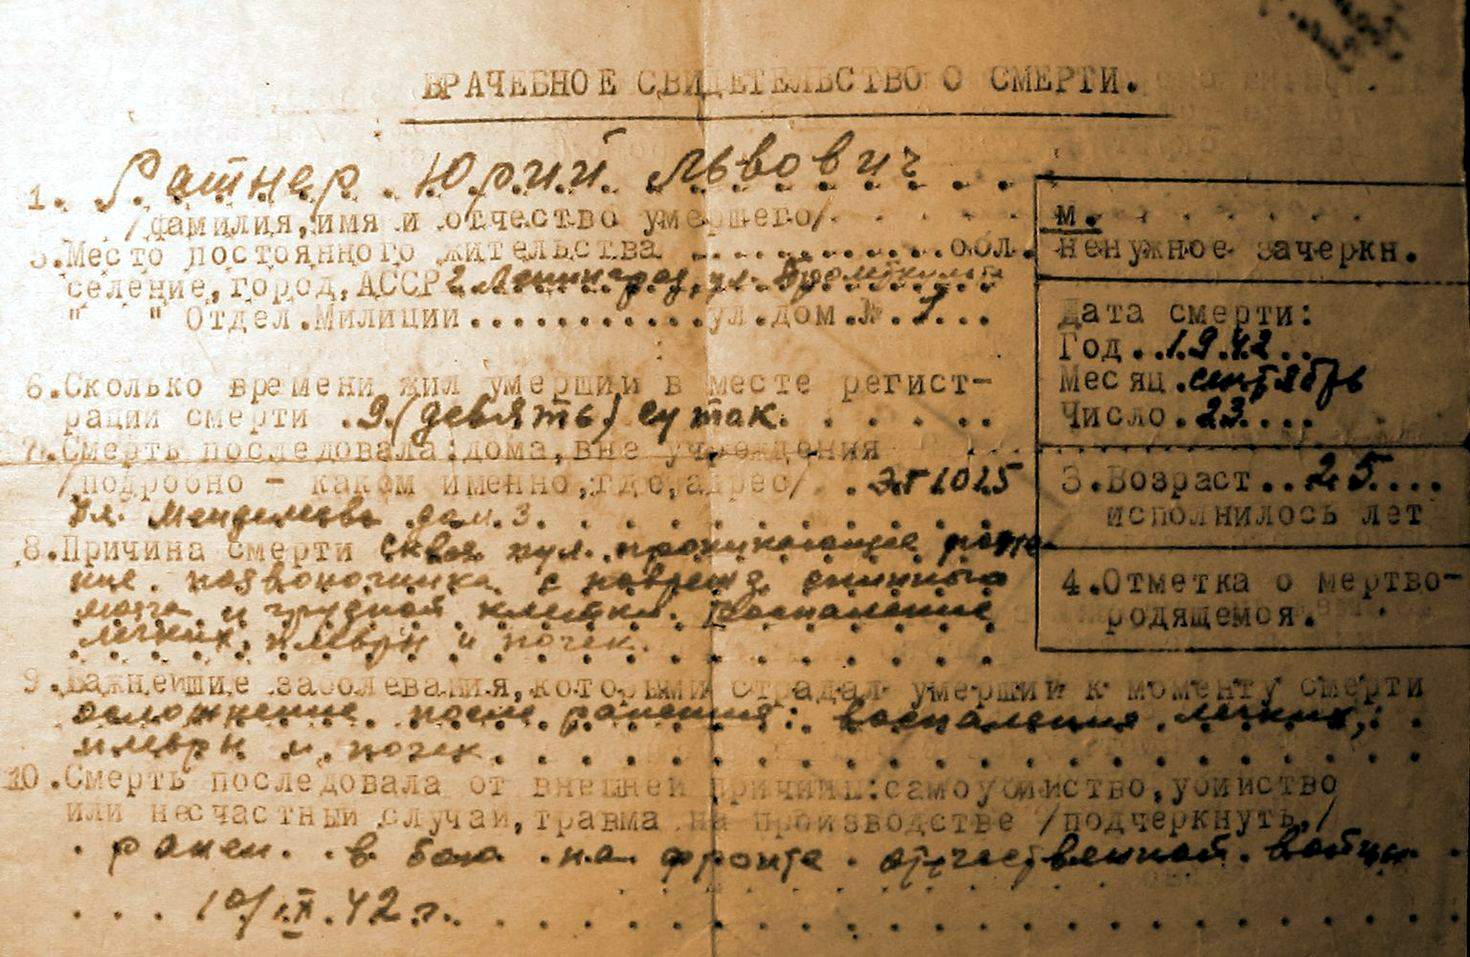 ВРАЧЕБНОЕ СВИДЕТЕЛЬСТВО О СМЕРТИ.
1. Ратнер Юрий Львович
/фамилия, имя и отчество умершего/
м.
ненужное зачеркн.
5. Место постоянного жительства .......... обл.
селение, город, АССР г. Ленинград, ул.
" " Отдел. Милиции........... ул. дом. № 1...
Дата смерти:
Год..1942..
Месяц.сентябрь
Число.23....
6. Сколько времени жил умерший в месте регист-
рации смерти .9 (девять) суток.
7. Смерть последовала: дома, вне учреждения
/подробно - каком именно, где, адрес/ .ЭГ 1015
Ул. Менделеева дом. 3.
3. Возраст..25....
исполнилось лет
8. Причина смерти сквоз. пул. проникающее ране-
ние позвоночника с повреж. спинного
мозга и грудной клетки. Воспаление
легких, плевры и почек.
4. Отметка о мертво-
родящемся.
9. Важнейшие заболевания, которыми страдал умерший к моменту смерти
осложнение после ранения: воспаления легких,
плевры и почек.
10. Смерть последовала от внешней причины: самоубийство, убийство
или несчастный случай, травма на производстве /подчеркнуть/
ранен в бою на фронте отечественной войны
10/IX.42 г.